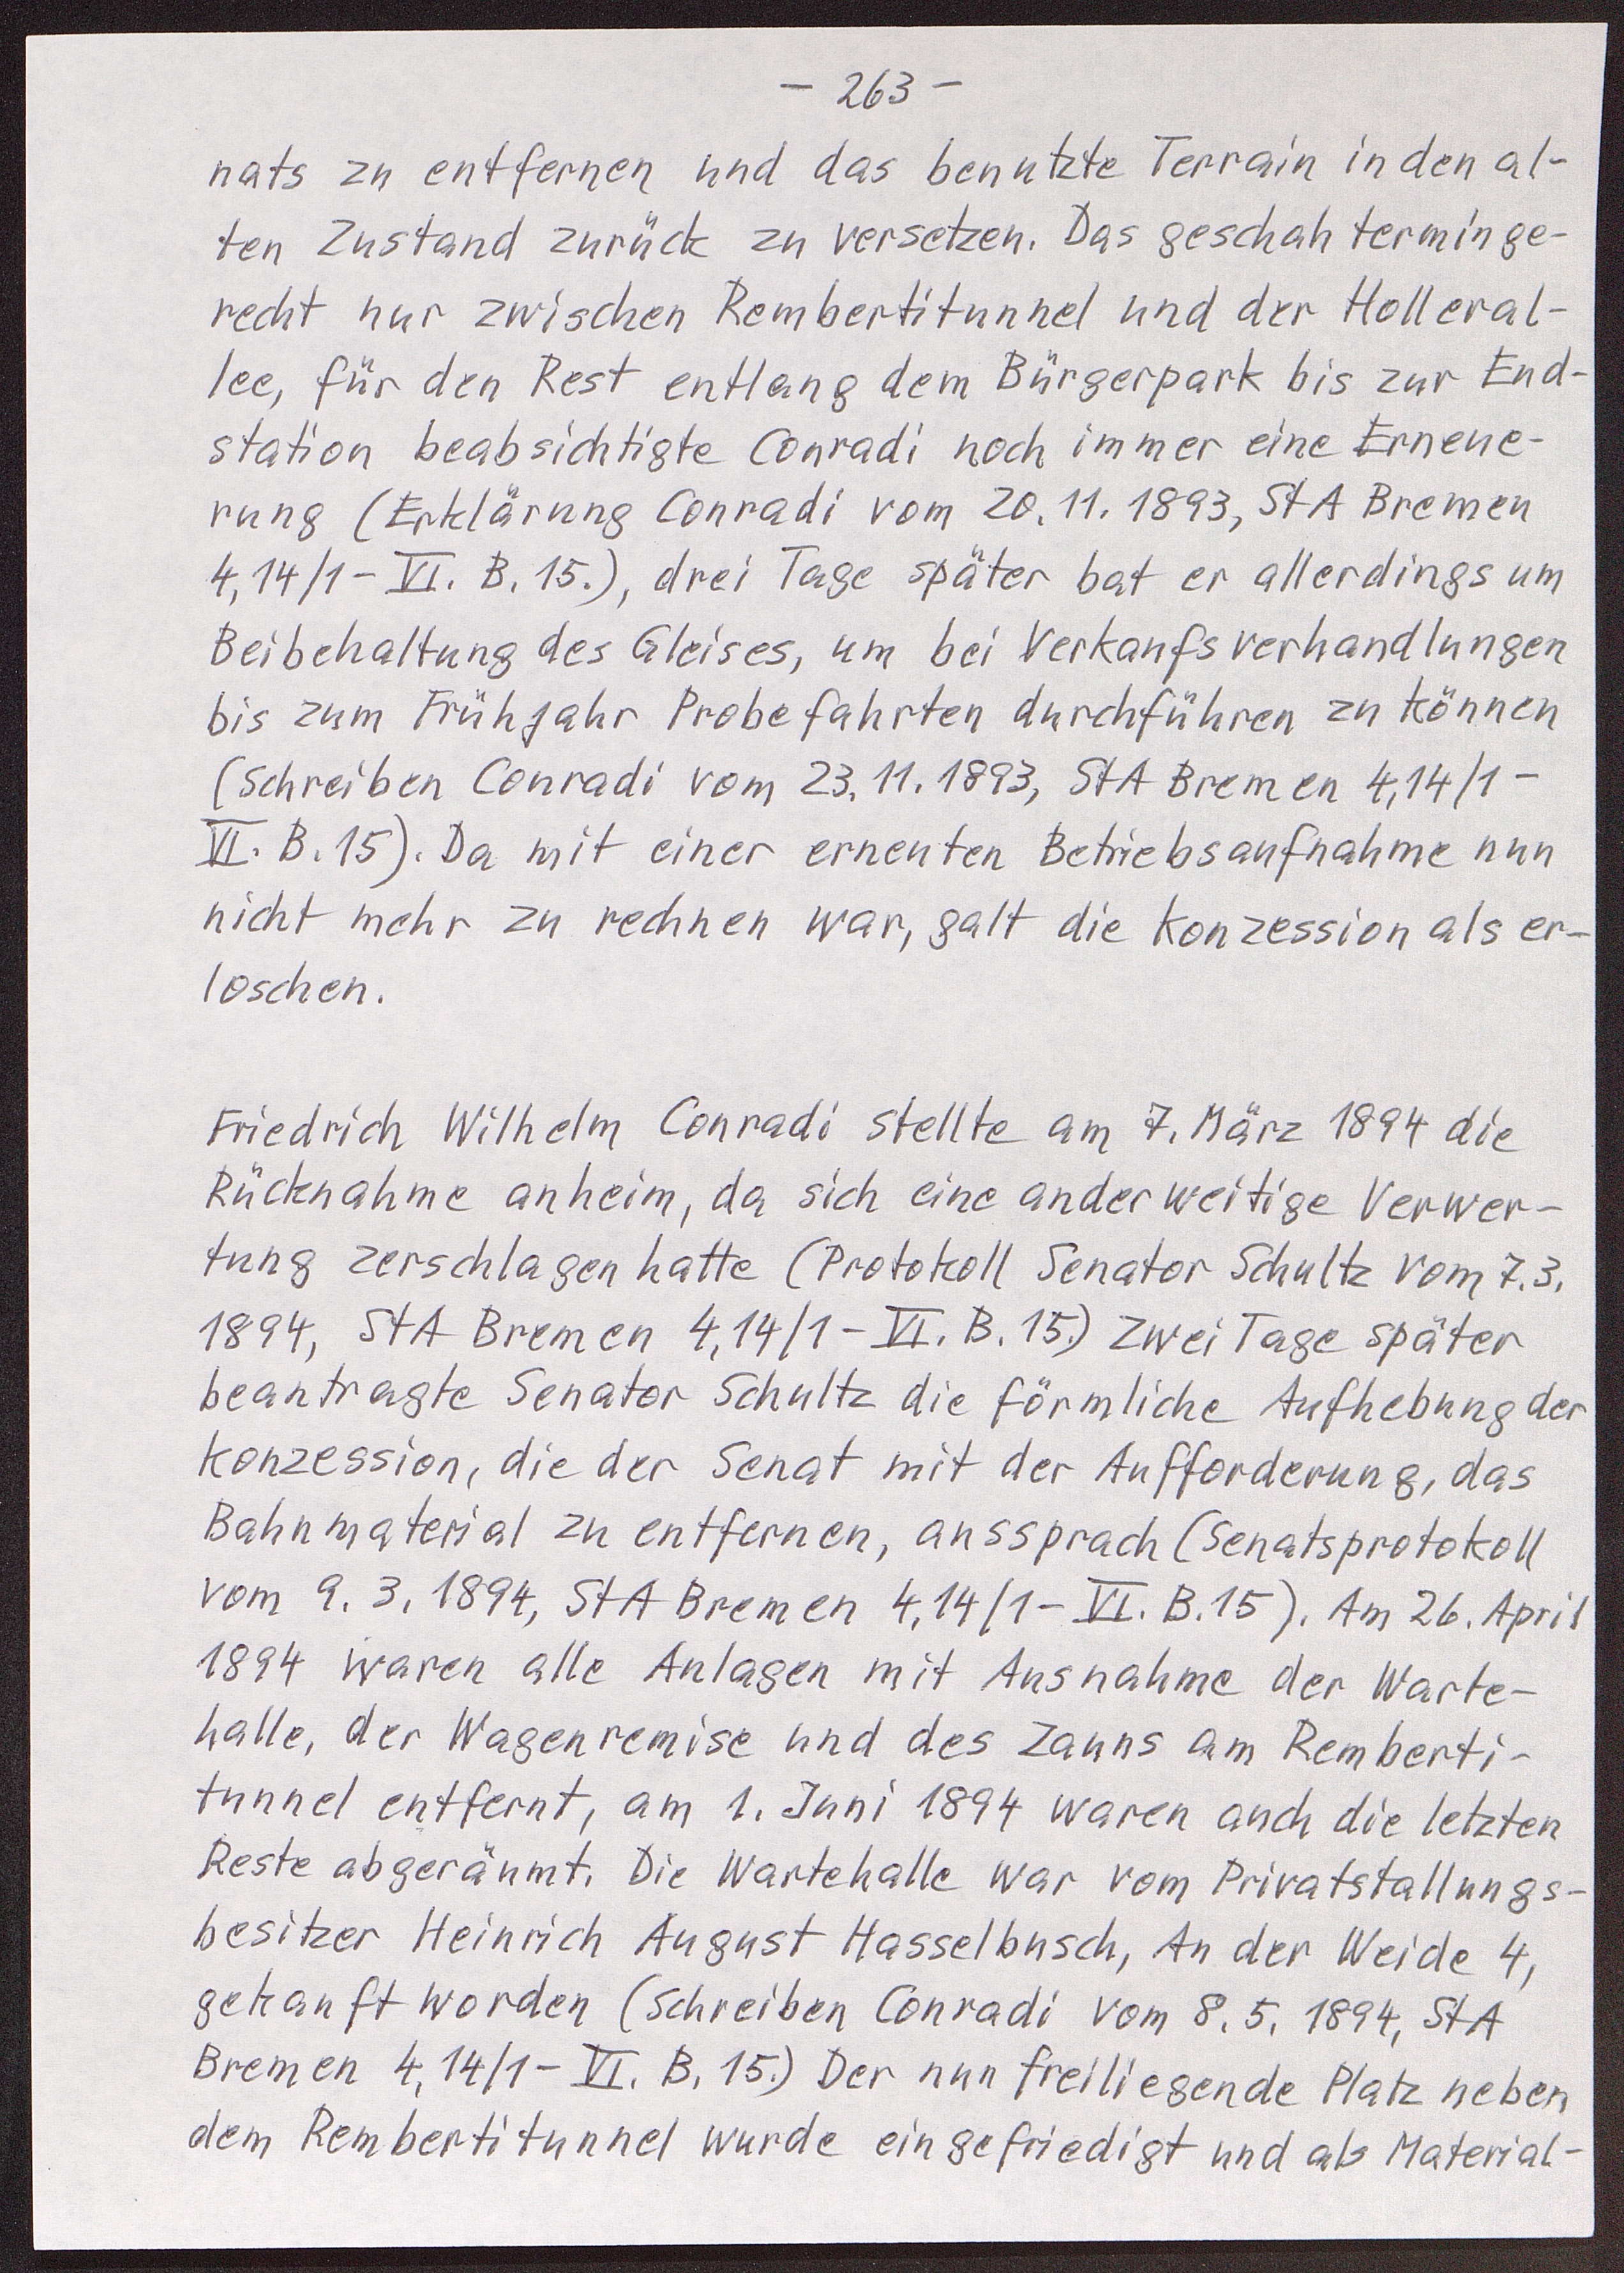 - 263 -
nats zu entfernen und das benutzte Terrain in den al-
ten Zustand zurück zu versetzen. Das geschah terminge-
recht nur zwischen Rembertitunnel und der Holleral-
lee, für den Rest entlang dem Bürgerpark bis zur End-
station beabsichtigte Conradi noch immer eine Erneue-
rung (Erklärung Conradi vom 20.11.1893, StA Bremen
4,14/1 - VI. B. 15.), drei Tage später bat er allerdings um
Beibehaltung des Gleises, um bei Verkaufsverhandlungen
bis zum Frühjahr Probefahrten durchführen zu können
(Schreiben Conradi vom 23.11.1893, StA Bremen 4,14/1 -
VI. B. 15). Da mit einer erneuten Betriebsaufnahme nun
nicht mehr zu rechnen war, galt die Konzession als er-
loschen.
Friedrich Wilhelm Conradi stellte am 7. März 1894 die
Rücknahme anheim, da sich eine anderweitige Verwer-
tung zerschlagen hatte (Protokoll Senator Schultz vom 7.3.
1894, StA Bremen 4,14/1 - VI. B. 15.) Zwei Tage später
beantragte Senator Schultz die förmliche Aufhebung der
Konzession, die der Senat mit der Aufforderung, das
Bahnmaterial zu entfernen, aussprach (Senatsprotokoll
vom 9. 3. 1894, StA Bremen 4,14/1 - VI. B. 15). Am 26. April
1894 waren alle Anlagen mit Ausnahme der Warte-
halle, der Wagenremise und des Zauns am Remberti-
tunnel entfernt, am 1. Juni 1894 waren auch die letzten
Reste abgeräumt. Die Wartehalle war vom Privatstallungs-
besitzer Heinrich August Hasselbusch, An der Weide 4,
gekauft worden (Schreiben Conradi vom 8. 5. 1894, StA
Bremen 4,14/1 - VI. B. 15.) Der nun freiliegende Platz neben
dem Rembertitunnel wurde eingefriedigt und als Material-